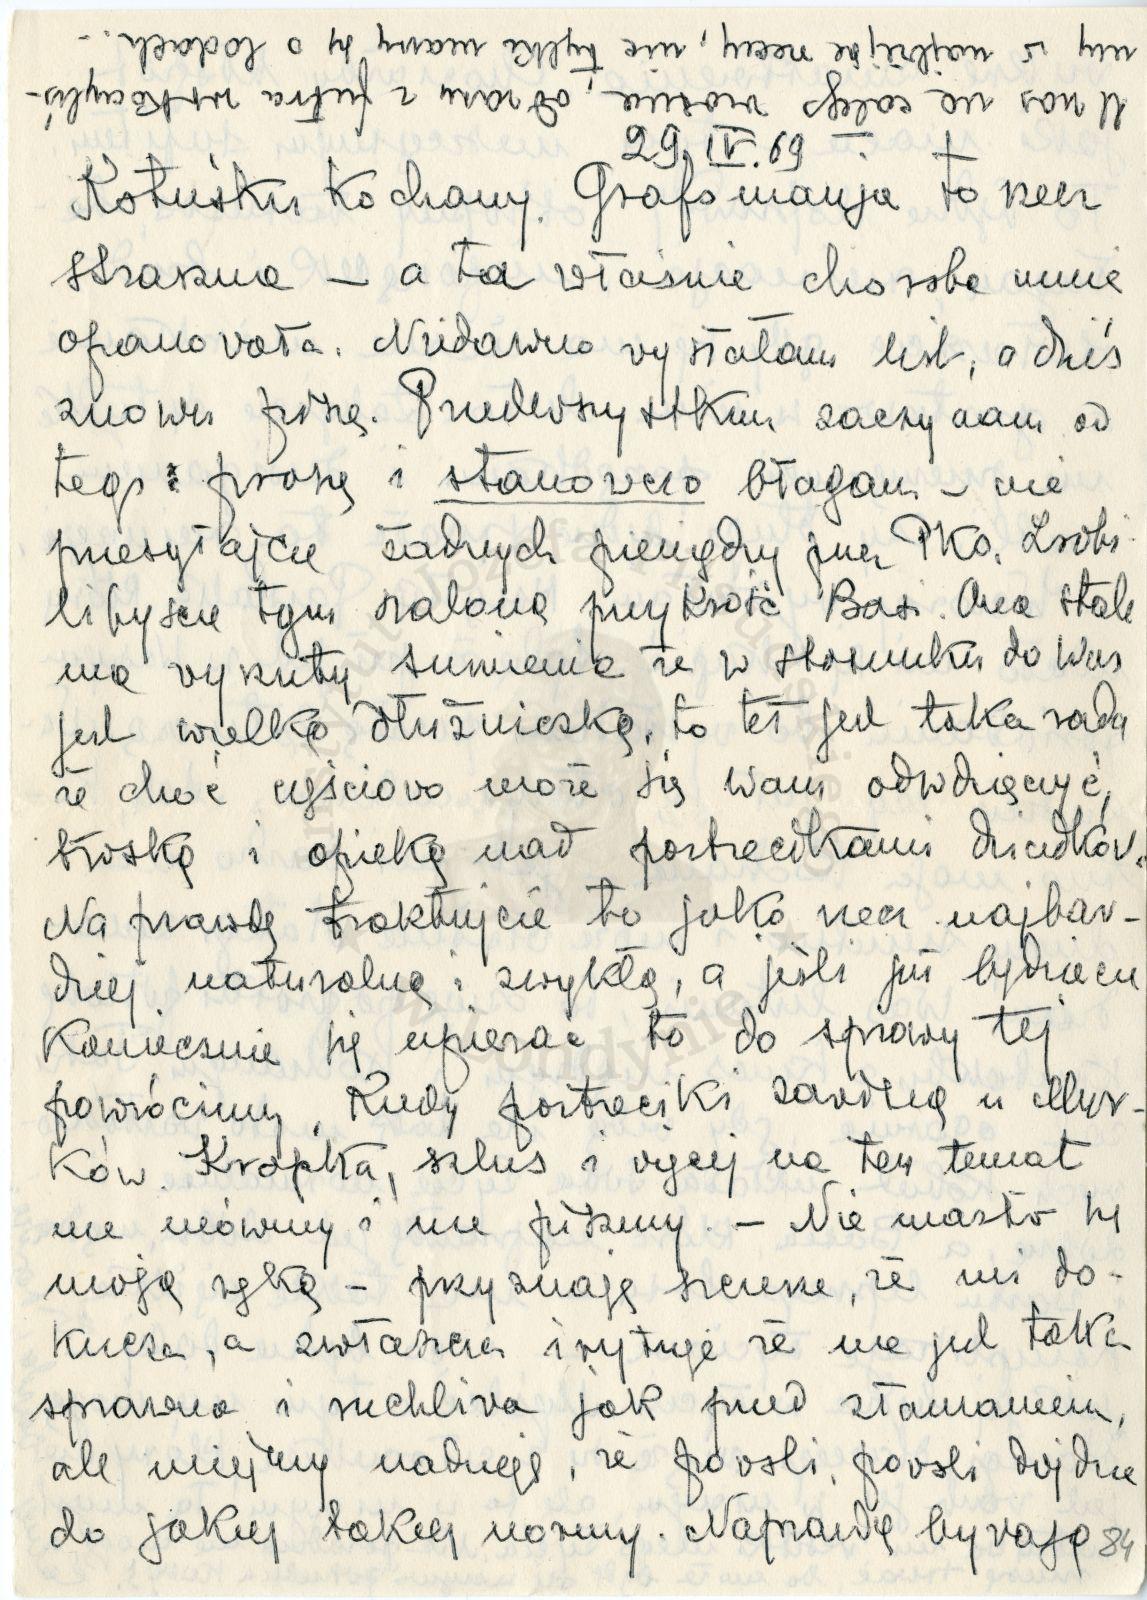 U nas na całego wiosna, od razu z futra wskoczyliś-
my w najlżejsze rzeczy, nie tylko marzy się o lodach...
29.IV.69
Kotuśku kochany. Grafomanja to rzecz
straszna – a ta właśnie choroba mnie
opanowała. Niedawno wysłałam list, a dziś
znowu piszę. Przedewszystkim zaczynam od
tego: proszę i stanowczo błagam – nie
przesyłajcie żadnych pieniędzy przez PKO. Zrobi-
libyście tym szaloną przykrość Basi. Ona stale
ma wyrzuty sumienia że w stosunku do Was
jest wielką dłużniczką, to też jest taka rada
że choć częściowo może się Wam odwdzięczyć,
troską i opieką nad portrecikami dziadków.
Naprawdę traktujcie to jako rzecz najbar-
dziej naturalną i zwykłą, a jeśli już będziecie
koniecznie się upierać to do sprawy tej
powrócimy, kiedy portreciki zawisną u
ków. Kropka, szlus i więcej na ten temat
nie mówimy i nie piszemy. – Nie martw się
moją ręką – przyznaję szczerze, że mi do-
kucza, a zwłaszcza irytuje że nie jest taka
sprawna i ruchliwa jak przed złamaniem,
ale miejmy nadzieję, że powoli, powoli dojdzie
do jakiej takiej normy. Naprawdę bywają
84
Instytut Józefa Piłsudskiego
w Londynie